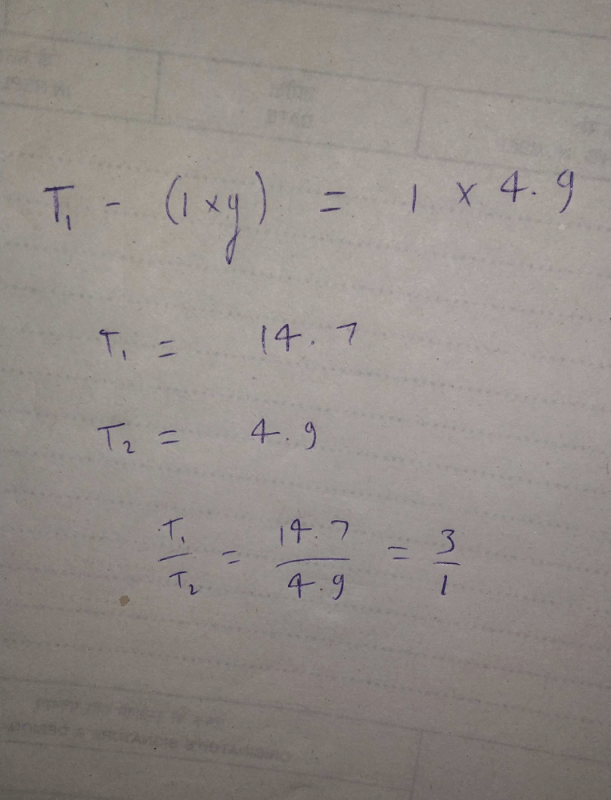 T₁ - (1 × g) = 1 × 4.9
T₁ = 14.7
T₂ = 4.9
T₁/T₂ = 14.7/4.9 = 3/1